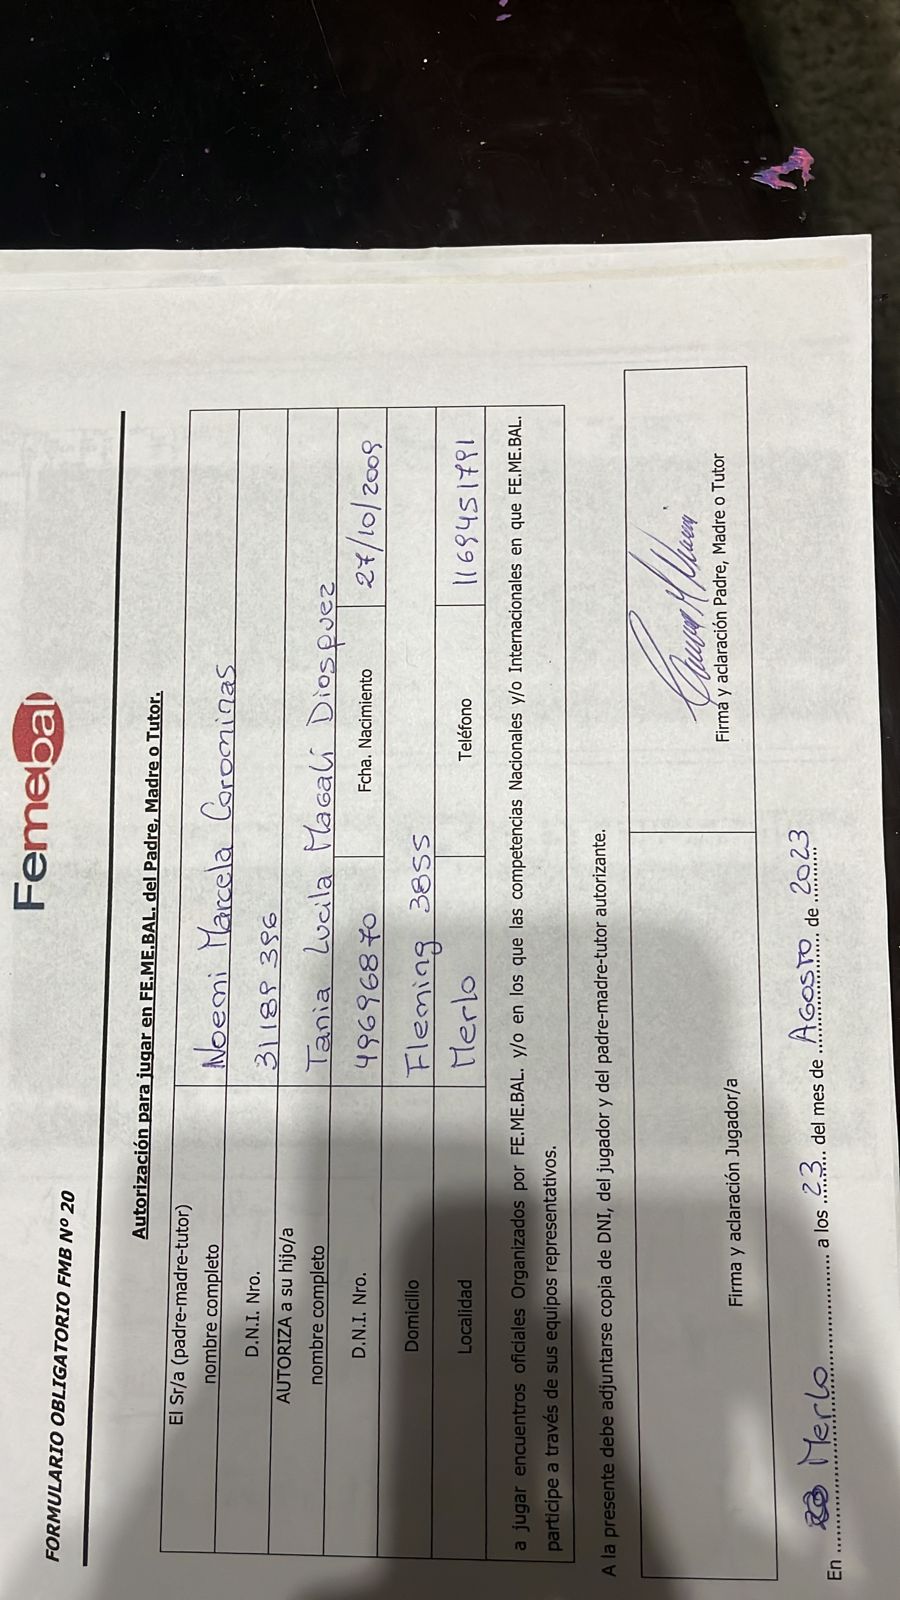 Femebal
FORMULARIO OBLIGATORIO FMB Nº 20
Autorización para jugar en FE.ME.BAL. del Padre, Madre o Tutor.
El Sr/a (padre-madre-tutor)
nombre completo Noemi Marcela Corominas
D.N.I. Nro. 31189 396
AUTORIZA a su hijo/a
nombre completo Tania Lucila Magalí Diosquez
D.N.I. Nro. 49696870 Fcha. Nacimiento 27/10/2009
Domicilio Fleming 3855
Localidad Merlo Teléfono 1169451791
a jugar encuentros oficiales Organizados por FE.ME.BAL. y/o en los que las competencias Nacionales y/o Internacionales en que FE.ME.BAL.
participe a través de sus equipos representativos.
A la presente debe adjuntarse copia de DNI, del jugador y del padre-madre-tutor autorizante.
Firma y aclaración Jugador/a Firma y aclaración Padre, Madre o Tutor
En Merlo a los 23 del mes de Agosto de 2023